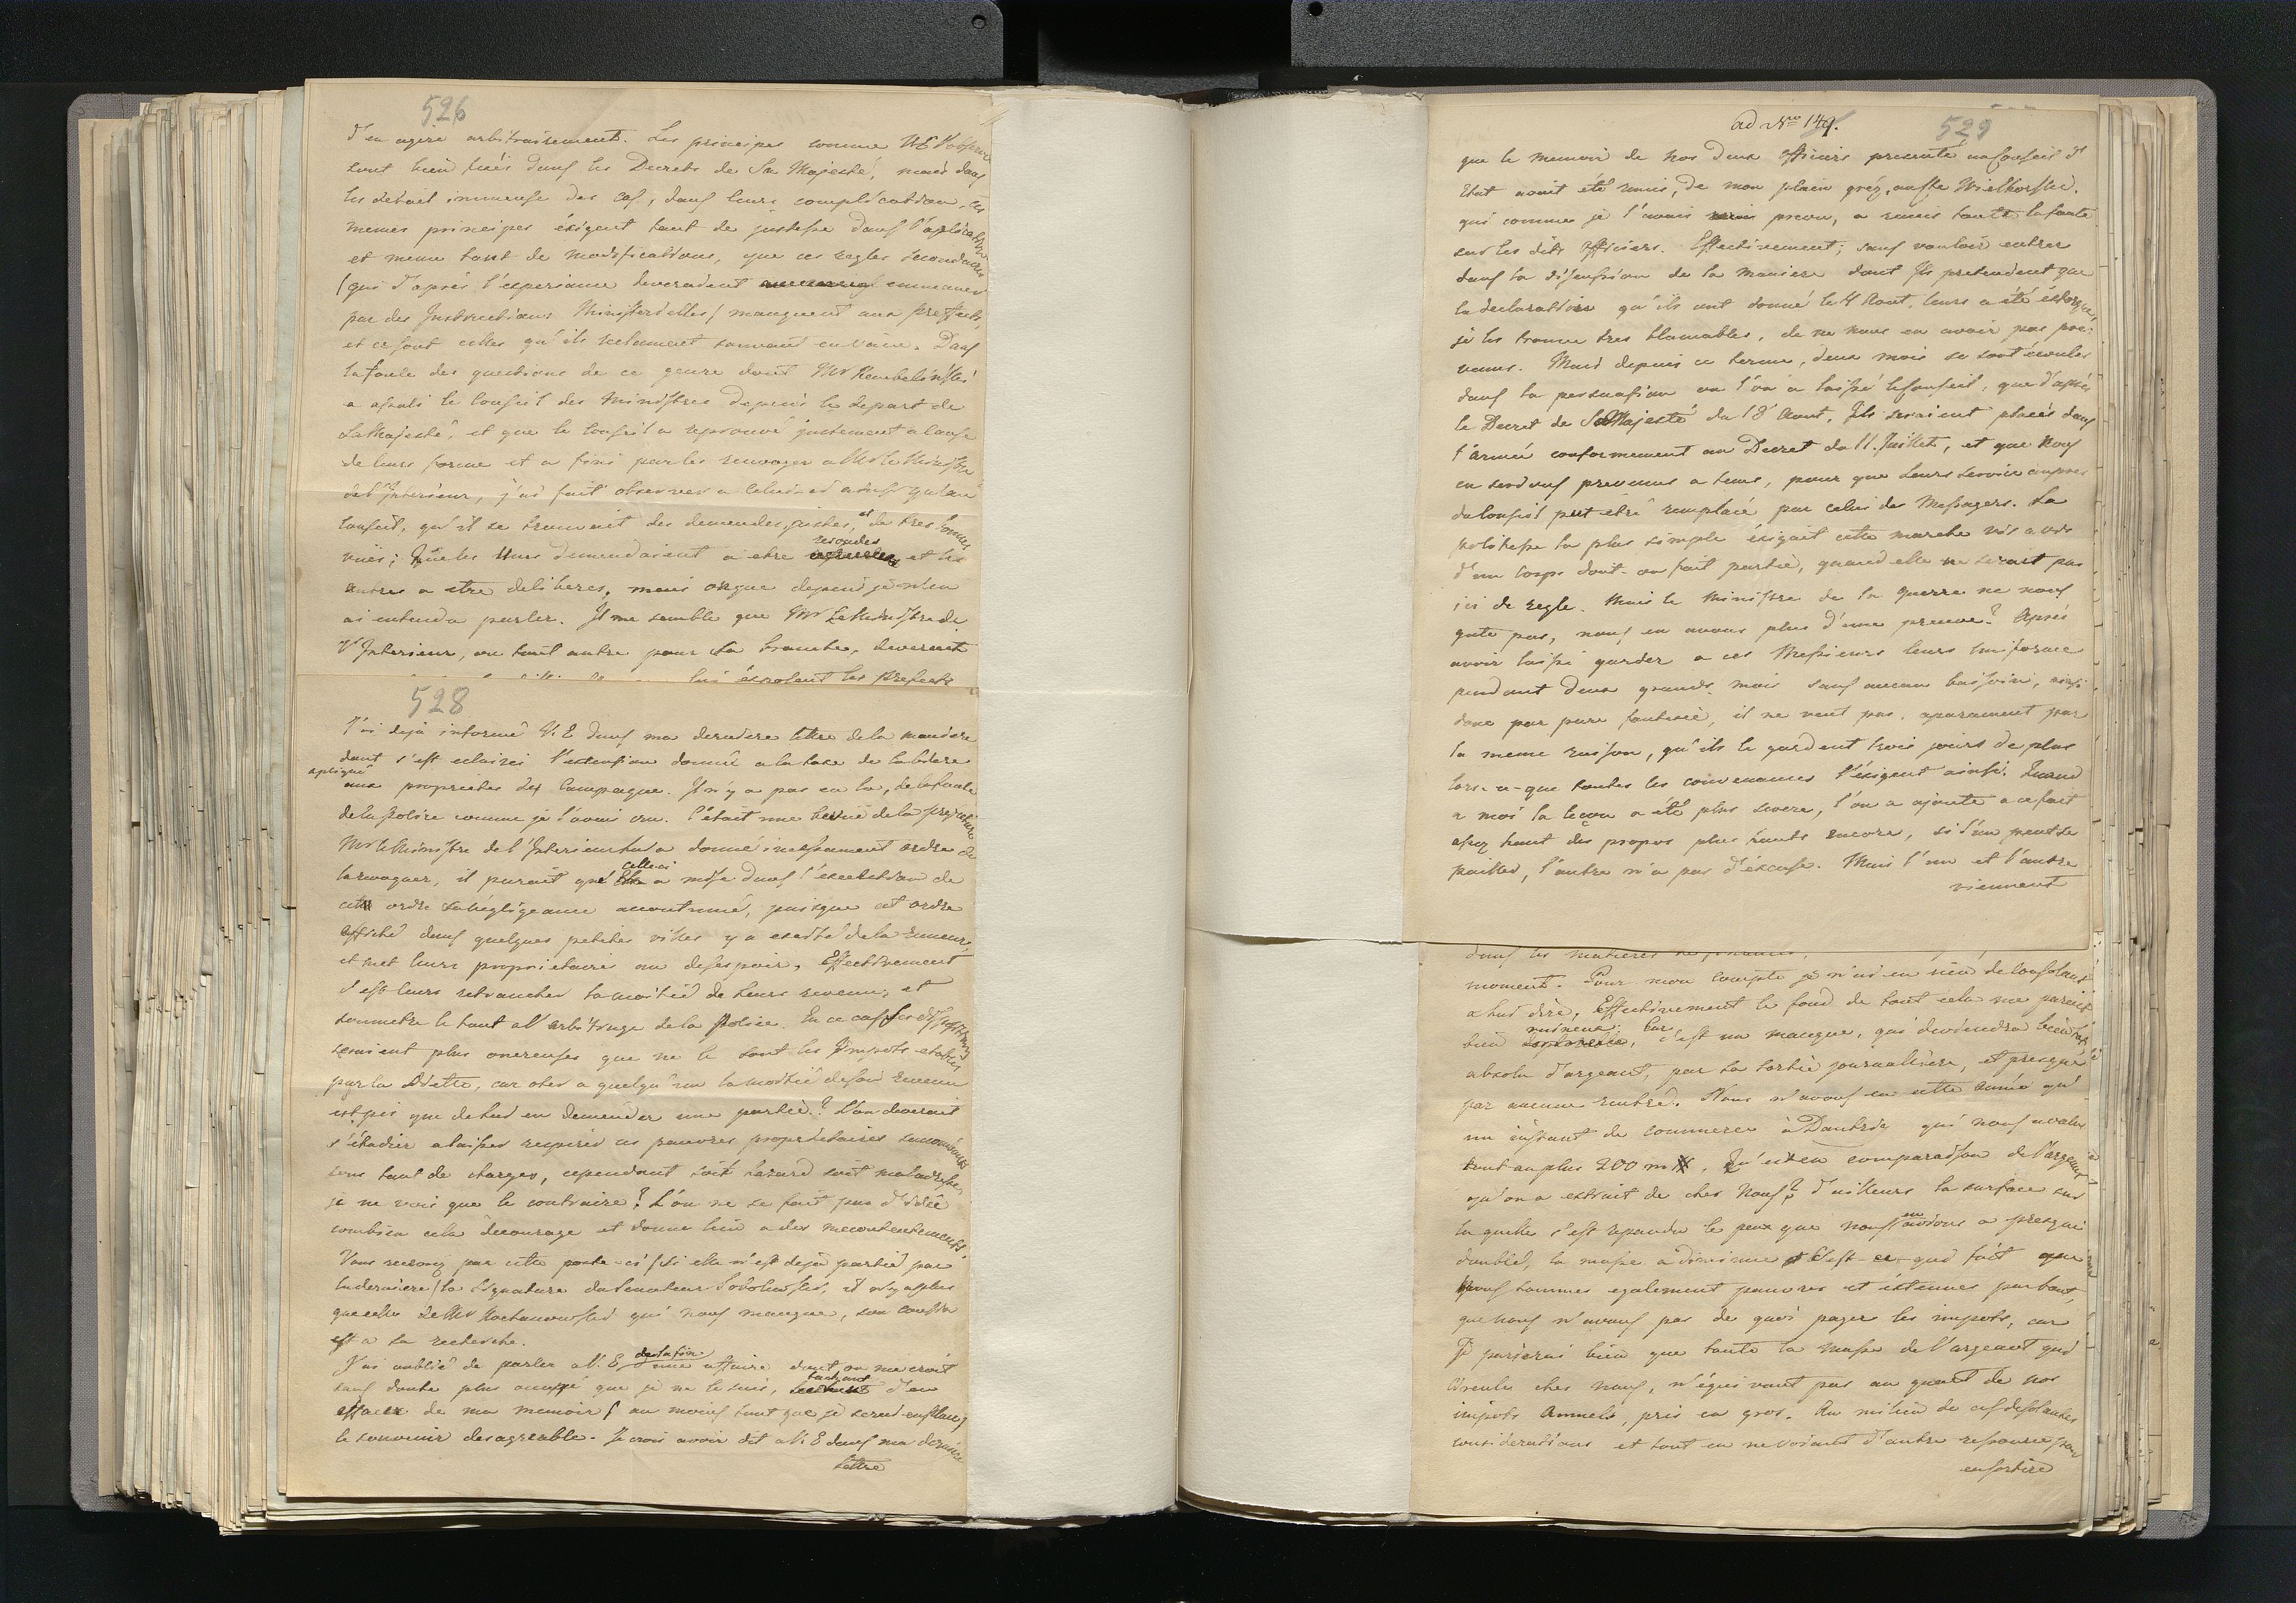 526
d'en agire arbitrairement. Les principes comme V.E. l'observe
sont bien fixés dans les Decrets de Sa Majesté, mais dans
les detail immense des cas, dans leurs complication, ces
memes principes éxigent tant de justesse dans l'aplication
et meme tant de modifications, que ces regles secondaires
(qui d'aprés l'experiance deveraient emmaner
par des Instructions Ministerielles) manquent aux prefects,
et ce sont celles qu'ils reclament souvent en vain. Dans
la foule des questions de ce genre dont Mr Rembelinski
a assali le Conseil des Ministres depuis le depart de
Sa Majesté, et que le Conseil a reprouvé justement a cause
de leurs forme et a fini par les renvoyer a Mr le Ministre
de l'Interieur, j'ai fait observer a celui-ci ainsi qu'au
Conseil, qu'il se trouvait des demendes justes, et de tres bonnes
vuës; que les unes demendaient a etre resoudes et les
autres a etre deliberes, mais onque depuis je n'en
ai entendu parler. Il me semble que Mr Le Ministre de
l'Interieur, ou tout autre pour sa branche, deverait
lui éxcolent les Prefects
528
J'ai dejà informé V.E dans ma derniere lettre de la maniere
dont s'est eclairci l'extension donnée a la taxe de la biere
apliqué
aux proprietés des Campagne. Il n'y a pas eu la, de la faute
de la Police comme je l'avais cru. C'était une bevue de la prefecture
Mr le Ministre de l'Interieur lui a donné incessament ordre de
la revoquer, il parait que celle-ci a mise dans l'execution de
cet ordre sa négligeance accoutumé, puisque cet ordre
affiché dans quelques petites villes y a excité de la rumeur,
et met leurs proprietaire au desespoir. Effectivement
c'est leurs retrancher la moitié de leurs revenu, et
soumetre le tout a l'arbitrage de la Police. En ce cas ces dispositions
seraient plus onereuses que ne le sont les Impots etablies
par la Diette, car oter a quelqu'un la moitié de son revenu
est pis que de lui en demender une partie? L'on deverait
s'étudier a laisser respirer ces pauvres proprietaires
sous tant de charges, cependant soit hazard soit maladresse,
je ne vois que le contraire? L'on ne se fait pas d'idée
combien cela decourage et donne lieu a des mecontentements.
Vous recevrez par cette poste-ci (si elle n'est dejà partie par
la derniere) la signature du Senateur Sobolewski, il n'y a plus
que celle de Mr Kochanowski qui nous manque, son cousin
est a sa recherche.
J'ai oublié de parler a V.E de la fin d'une affaire dont on me croit
sans doute plus occupé que je ne le suis, tachant d'en
effacer de ma memoire (au moins tant que je serai en place)
le souvenir desagreable. Je crois avoir dit a V.E dans ma derniere
Lettre
ad No 149.
529
que le memoir de nos deux officiers presenté au Conseil d'
Etat avait été remis, de mon plain gréz, au Cte Wielhorski.
qui comme je l'avais prevu, a remis toute la faute
sur les dits officiers. Effectivement; sans vouloir entrer
dans la discussion de la maniere dont Ils pretendent que
la declaration qu'ils ont donné le 4 Aout, leurs a été éxtorqué,
je les trouve tres blamables, de ne nous en avoir pas pre-
venus. Mais depuis ce terme, deux mois se sont écoulés
dans la persuasion ou l'on a laissé le Conseil, que d'aprés
le Decret de Sa Majesté du 18 Aout, Ils seraient placés dans
l'armée conformement au Decret du 11. Juillet, et que Nous
en serions prevenus a tems, pour que leurs service aupres
du Conseil put être remplacé par celui des Messagers. La
politesse la plus simple éxigait cette marche vis a vis
d'un Corps dont on fait partie, quand elle ne serait pas
ici de regle. Mais le Ministre de la guerre ne nous
gate pas, nous en avons plus d'une preuve? Aprés
avoir laissé garder a ces Messieurs leurs Uniforme
pendant deux grands mois sans aucun baisoin, ainsi
donc par pure fantaisie, il ne veut pas, aparament par
la meme raison, qu'ils le gardent trois jours de plus
lors-ce-que toutes les convenances l'éxigent ainsi. Quand
a moi la leçon a été plus severe, l'on a ajouté a ce fait
assez haut des propos plus hauts encore, si l'un peut se
pallier, l'autre n'a pas d'éxcuse. Mais l'un et l'autre
viennent
dans les matieres
moment. Pour mon compte je n'ai en rien de consolant
a lui dire, Effectivement le fond de tout cela me parait
bien ruineux: Car, c'est un manque, qui deviendra bientôt
absolu d'argeant, par sa sortie journaliere, et presque
par aucune rentré. Nous n'avons eu cette année qu'
un instant de commerce à Dantzig qui nous a valu
tout au plus 200 m #, qu'est-ce en comparaison de l'argeant
qu'on a extrait de chez Nous? d'ailleurs la surface sur
la quelle s'est repandu le peux que nous en avions a presque
doublé, la masse a diminué c'est-ce-qui fait que
Nous sommes egalement pauvres et éxtenués partout,
que Nous n'avons pas de quoi payer les impots, car
Je parierai bien que toute la masse de l'argeant qui
circule chez nous, n'équivaut pas au quart de nos
impots Annuels, pris en gros. Au milieu de ces desolantes
considerations et tout en ne voiant d'autre ressource pour
en sortire